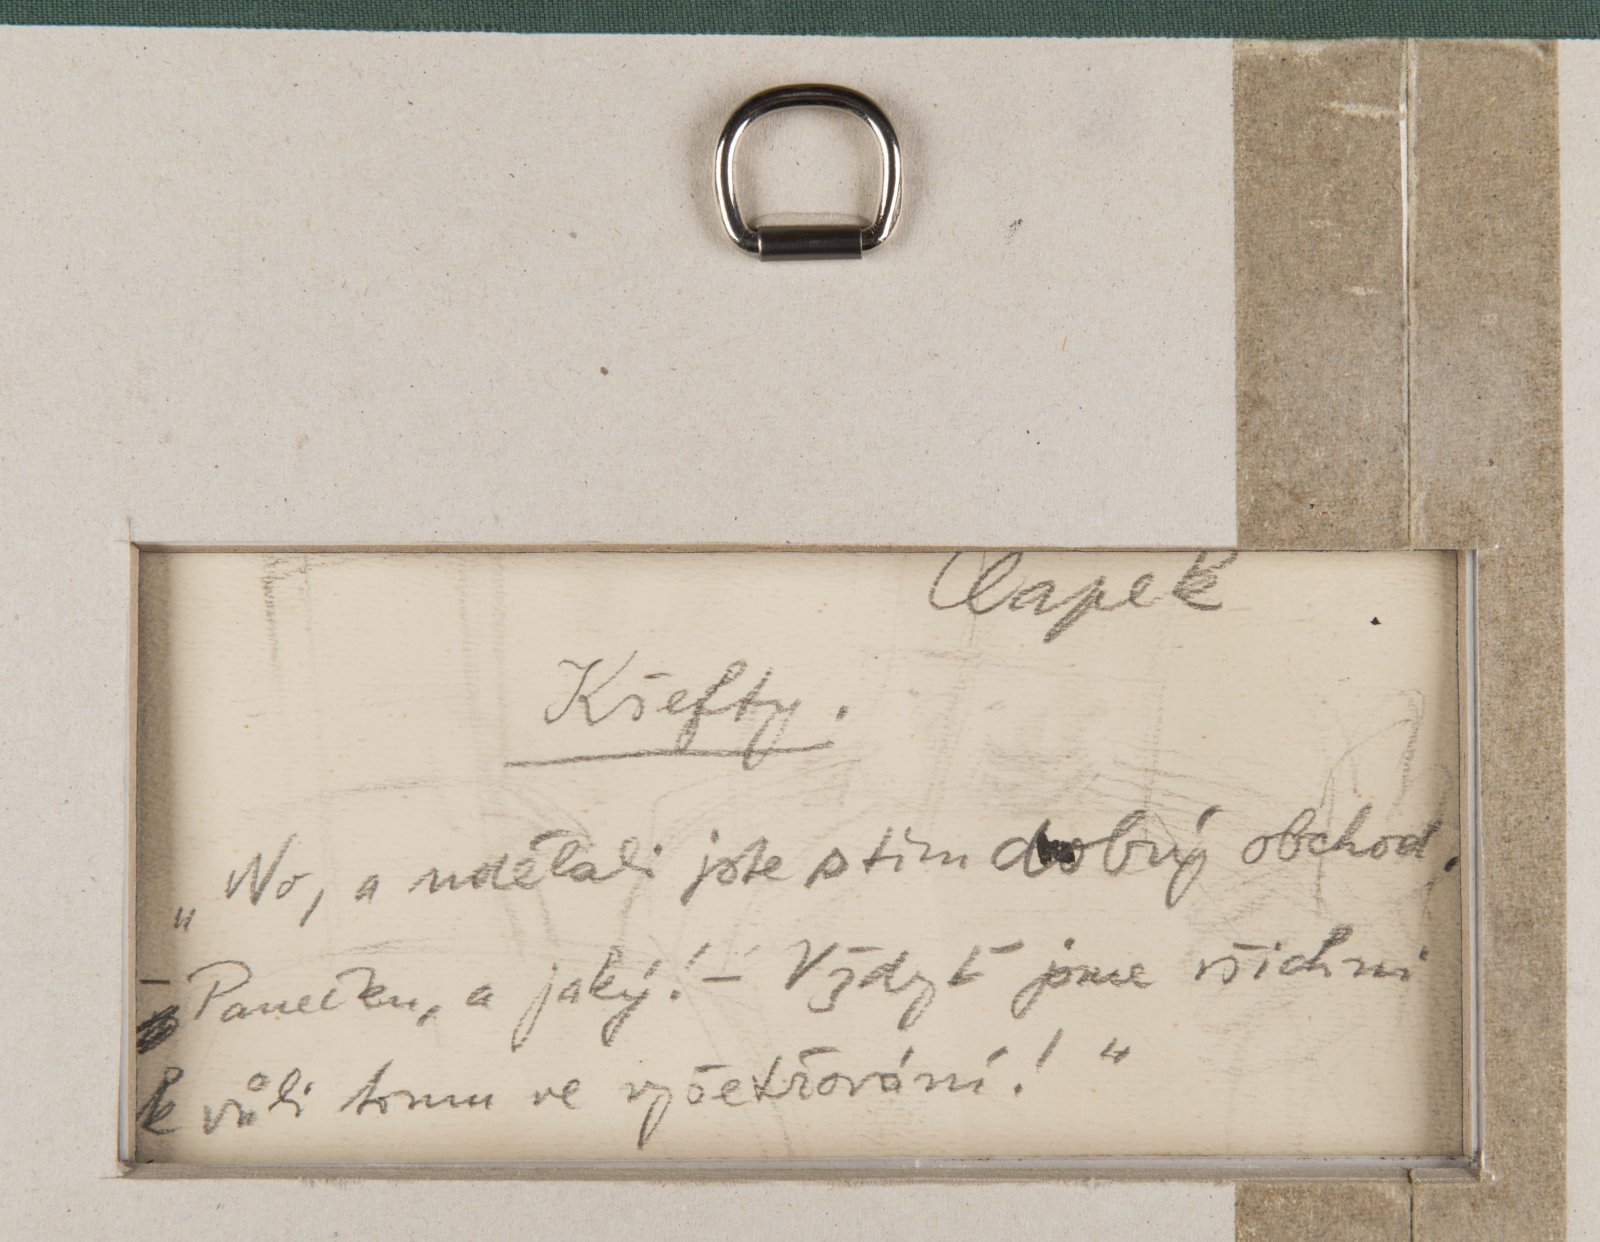 Čapek
Kšefty.
„No, a udělali jste s tím dobrý obchod.
– Panečku, a jaký! – Vždyť jsme všichni
k vůli tomu ve vyšetřování!“